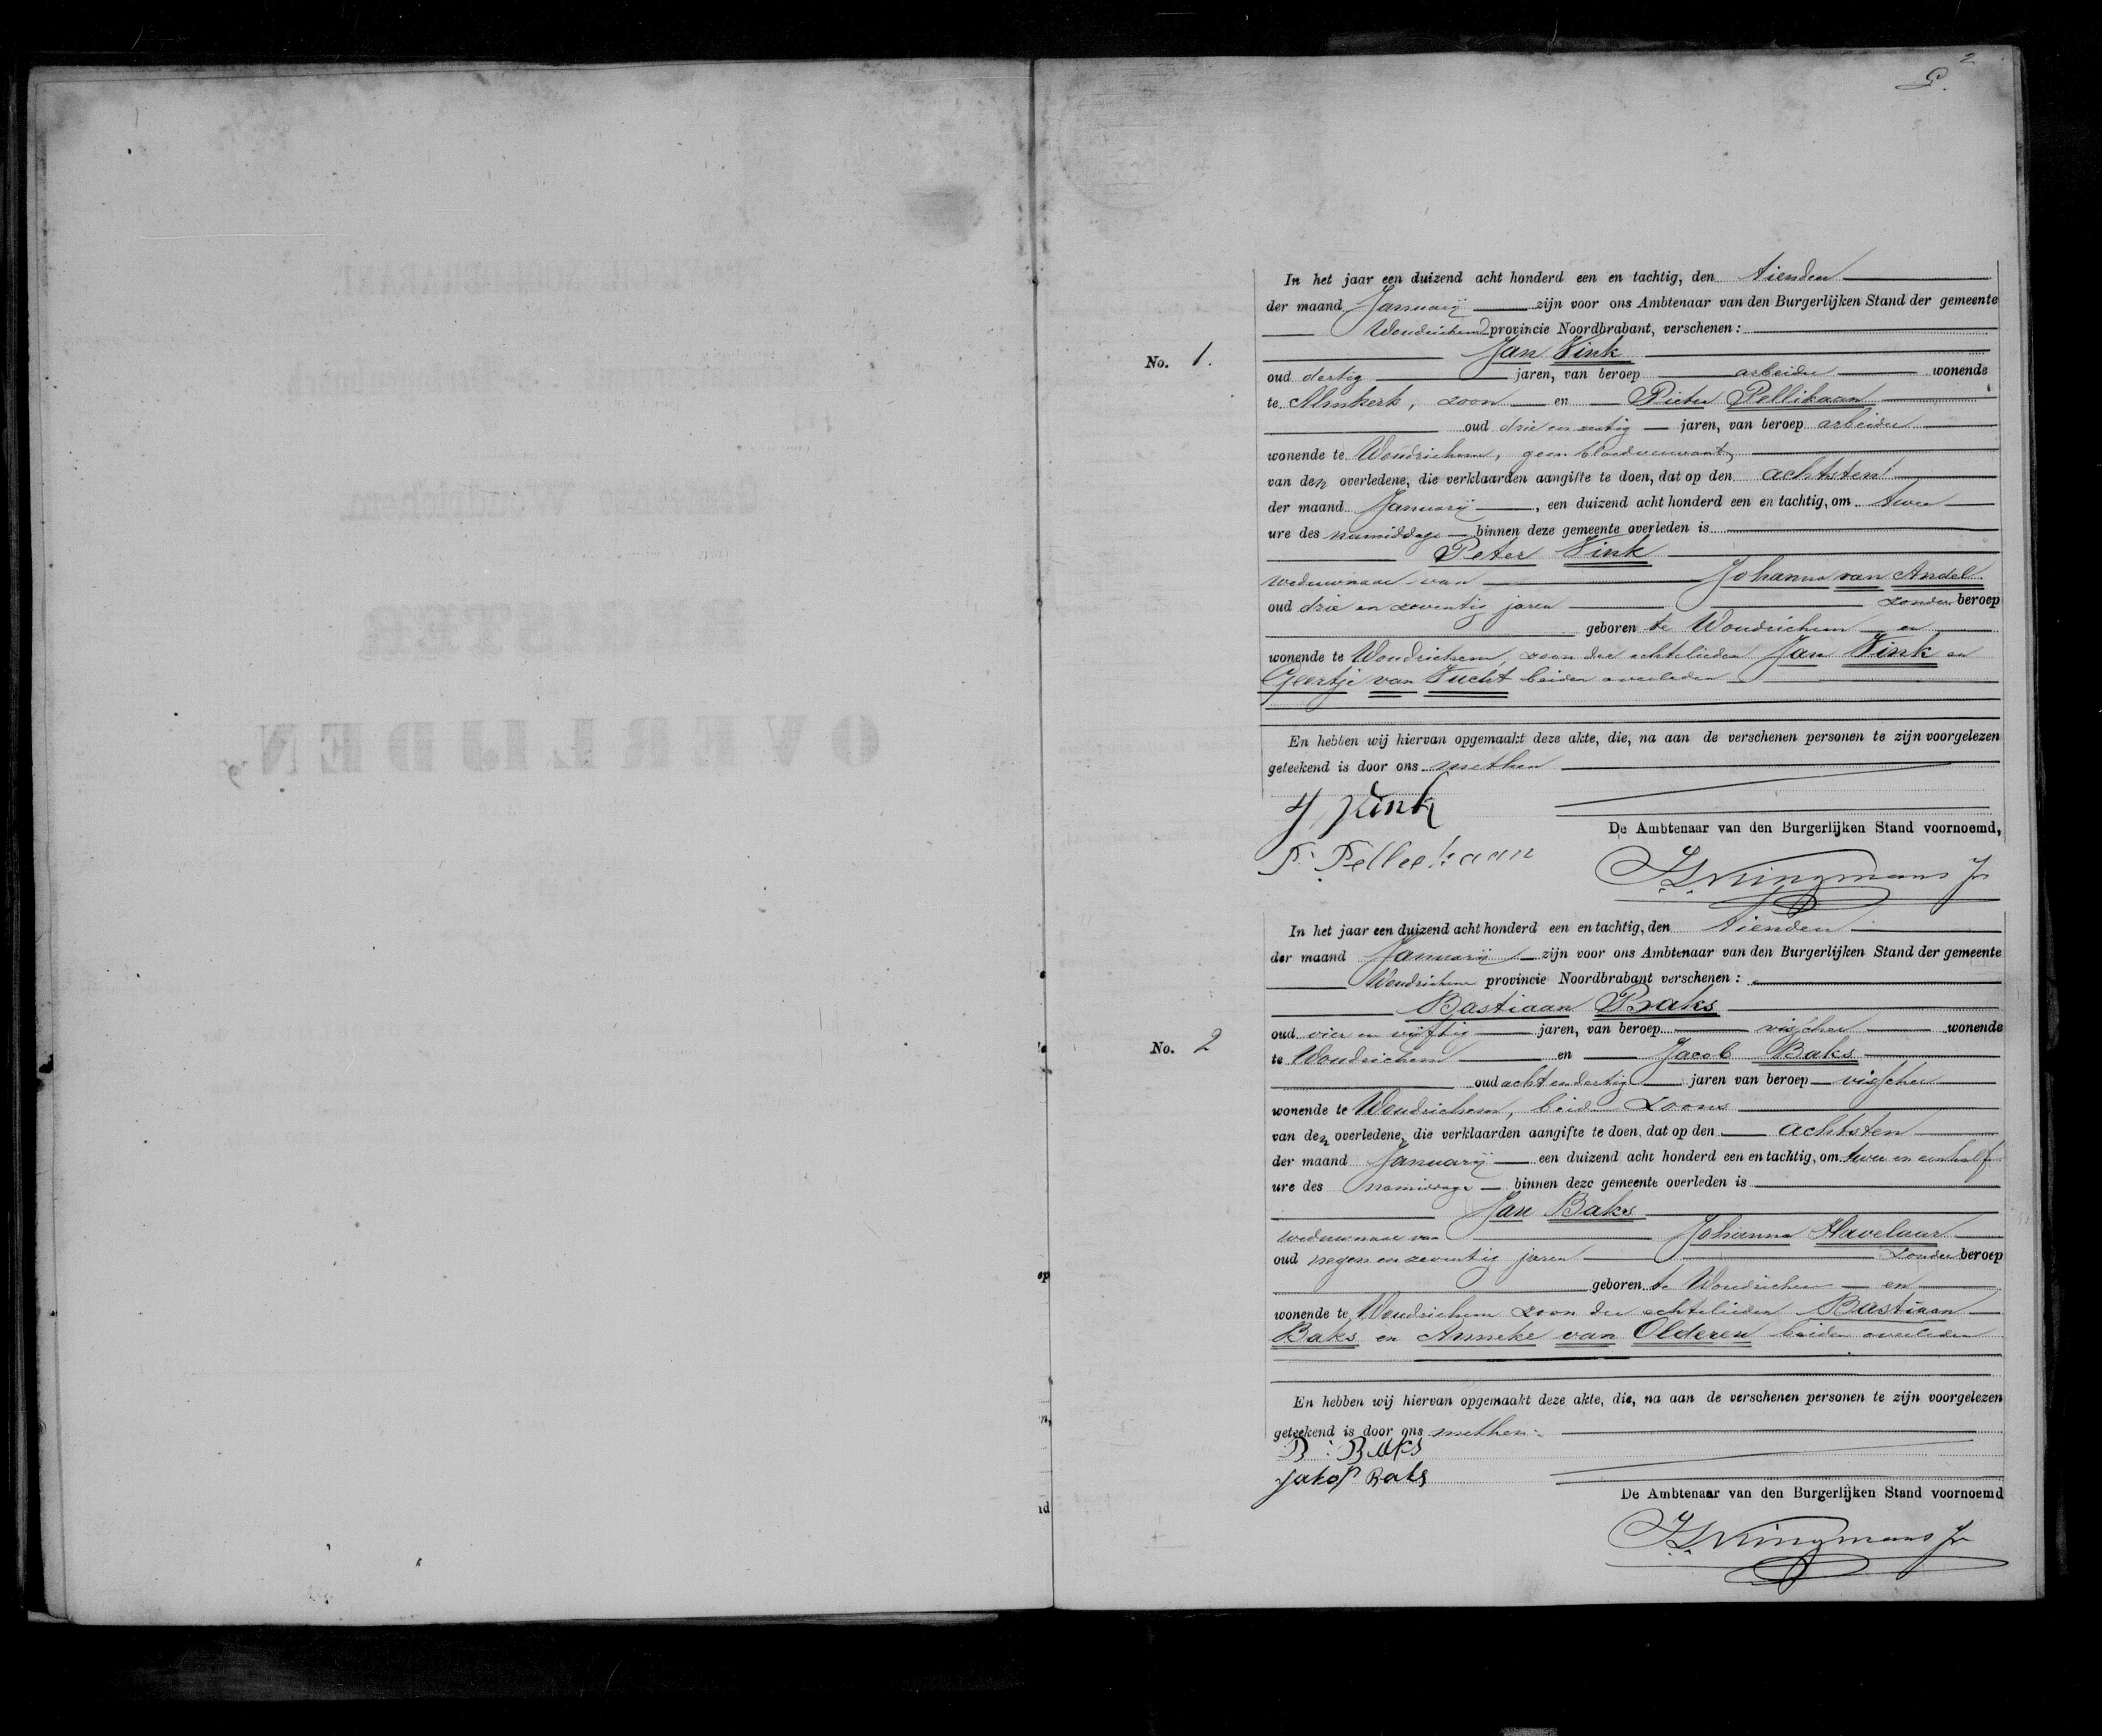 2
No. 1.
In het jaar een duizend acht honderd een en tachtig, den tienden
der maand Januarij zijn voor ons Ambtenaar van den Burgerlijken Stand der gemeente
Woudrichem provincie Noordbrabant, verschenen:
Jan Vink
oud dertig jaren, van beroep arbeider wonende
te Almkerk, zoon en Pieter Pellikaan
oud drie en zestig jaren, van beroep arbeider
wonende te Woudrichem, geen bloedverwant,
van den overledene, die verklaarden aangifte te doen, dat op den achtsten
der maand Januarij, een duizend acht honderd een en tachtig, om twee
ure des namiddags binnen deze gemeente overleden is
Peter Vink
weduwnaar van Johanna van Andel
oud drie en zeventig jaren zonder beroep
geboren te Woudrichem en
wonende te Woudrichem, zoon der echtelieden Jan Vink en
Geertje van Tucht beiden overleden
En hebben wij hiervan opgemaakt deze akte, die, na aan de verschenen personen te zijn voorgelezen
geteekend is door ons met hen
J, Vink
De Ambtenaar van den Burgerlijken Stand voornoemd,
P. Pelleekaan
In het jaar een duizend acht honderd een en tachtig, den tienden
der maand Januarij zijn voor ons Ambtenaar van den Burgerlijken Stand der gemeente
Woudrichem provincie Noordbrabant verschenen:
Bastiaan Baks
No. 2
oud vier en vijftig jaren, van beroep visscher wonende
te Woudrichem en Jacob Baks
oud acht en dertig jaren van beroep visscher
wonende te Woudrichem, beide zoons
van den overledene, die verklaarden aangifte te doen, dat op den achtsten
der maand Januarij een duizend acht honderd een en tachtig, om twee en een half
ure des namiddags binnen deze gemeente overleden is
Jan Baks
weduwnaar van Johanna Havelaar
oud negen en zeventig jaren zonder beroep
geboren te Woudrichem en
wonende te Woudrichem zoon der echtelieden Bastiaan
Baks en Anneke van Olderen beiden overleden
En hebben wij hiervan opgemaakt deze akte, die, na aan de verschenen personen te zijn voorgelezen
geteekend is door ons met hen.
B: Baks
Jakop Baks
De Ambtenaar van den Burgerlijken Stand voornoemd